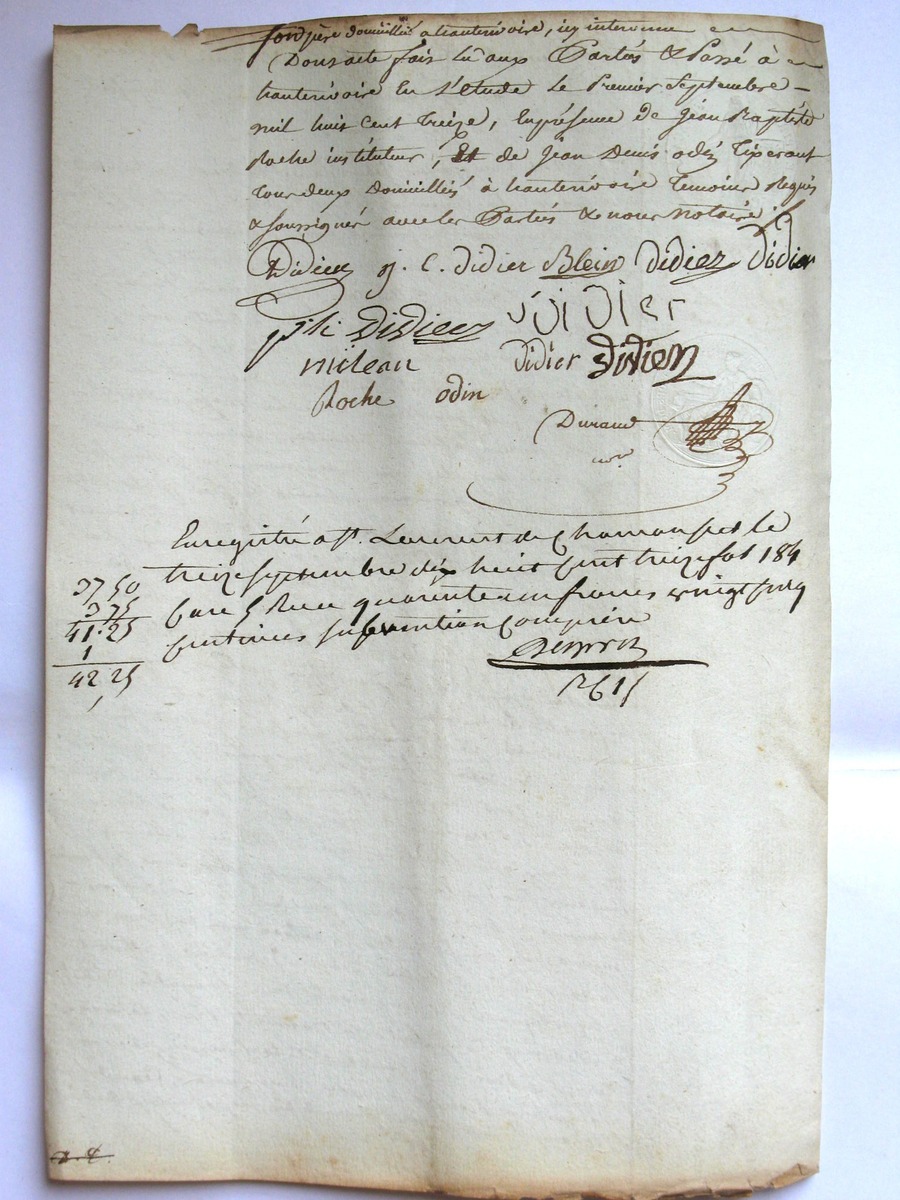 son père domicilié a hauterivoire, icy intervenue
Dont acte fait lu aux Parties & Passé à
hauterivoire En l'étude Le Premier Septembre
mil huit cent treize, En présence de Jéan Baptiste
Roche instituteur, Et de Jéan Denis odin
tous deux Domiciliés à hauterivoire temoins Requis
& soussignés avec les Parties & nous Notaire
Didier j. C. Didier Blein Didier Didier
Didier Didier
Didier Didier
Roche odin
Durand
Enregistré a St. Laurent de Chamousset le
treize septembre dix huit cent treize fol 184
Case 5 Recu quarante un francs vingt cinq
centimes subvention comprise
37 50
3 75
41.25
1
42 25
2615